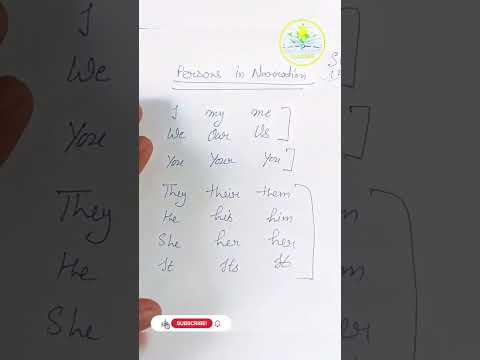 I
We
You
They
He
She
Persons in Narration
I my me
We Our Us
You Your You
They their them
He his him
She her her
It Its It
SUBSCRIBE!